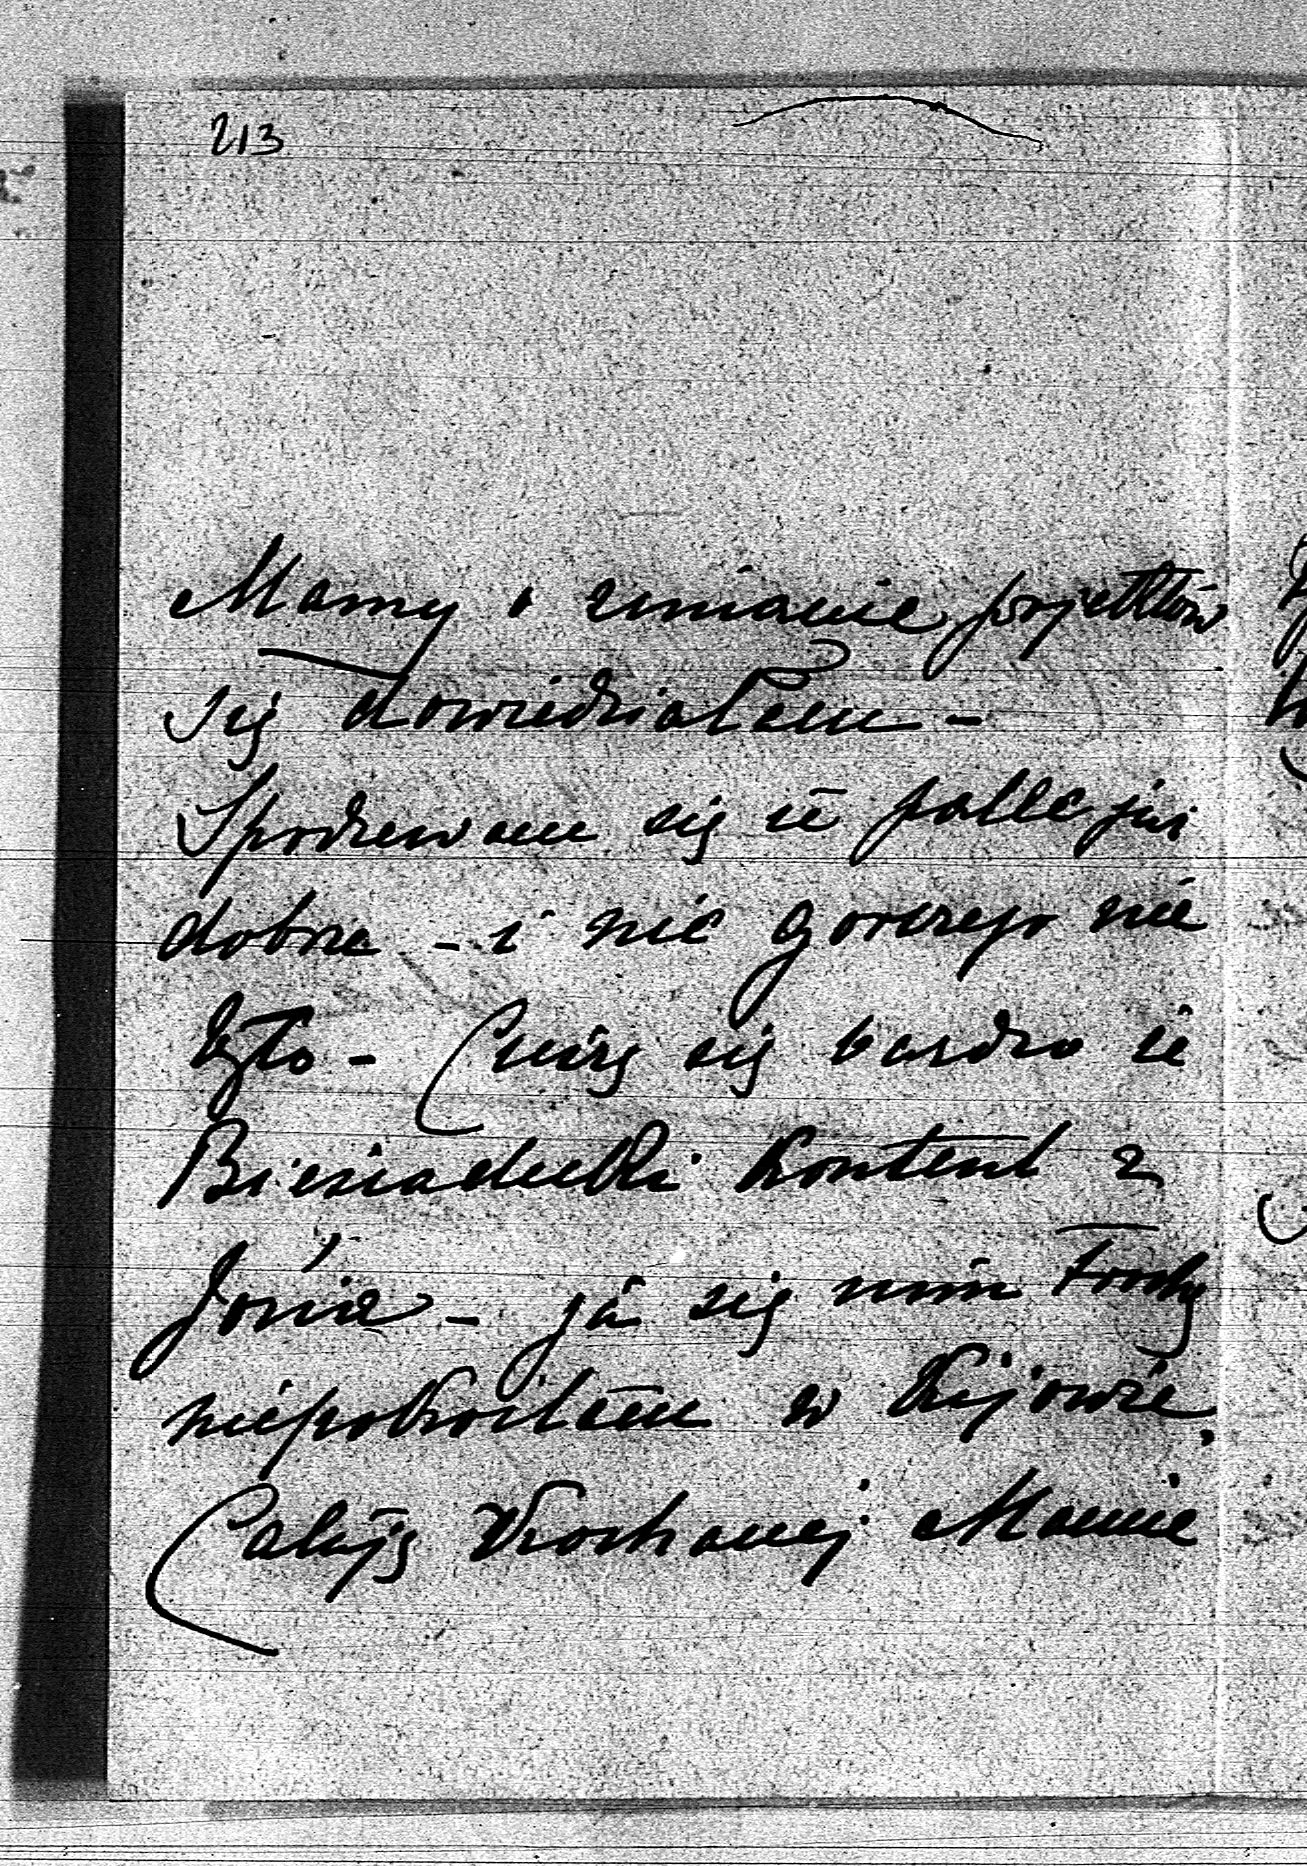 213
Mamy o zmianie projektów
się dowiedziałem -
Spodziewam się że palec już
dobrze - i nic gorszego nie
było - Cieszę się bardzo że
Biesiadecki kontent z
Józia - ja się nim trochę
niepokoiłem w Kijowie,
Całuję Kochanej Mamie